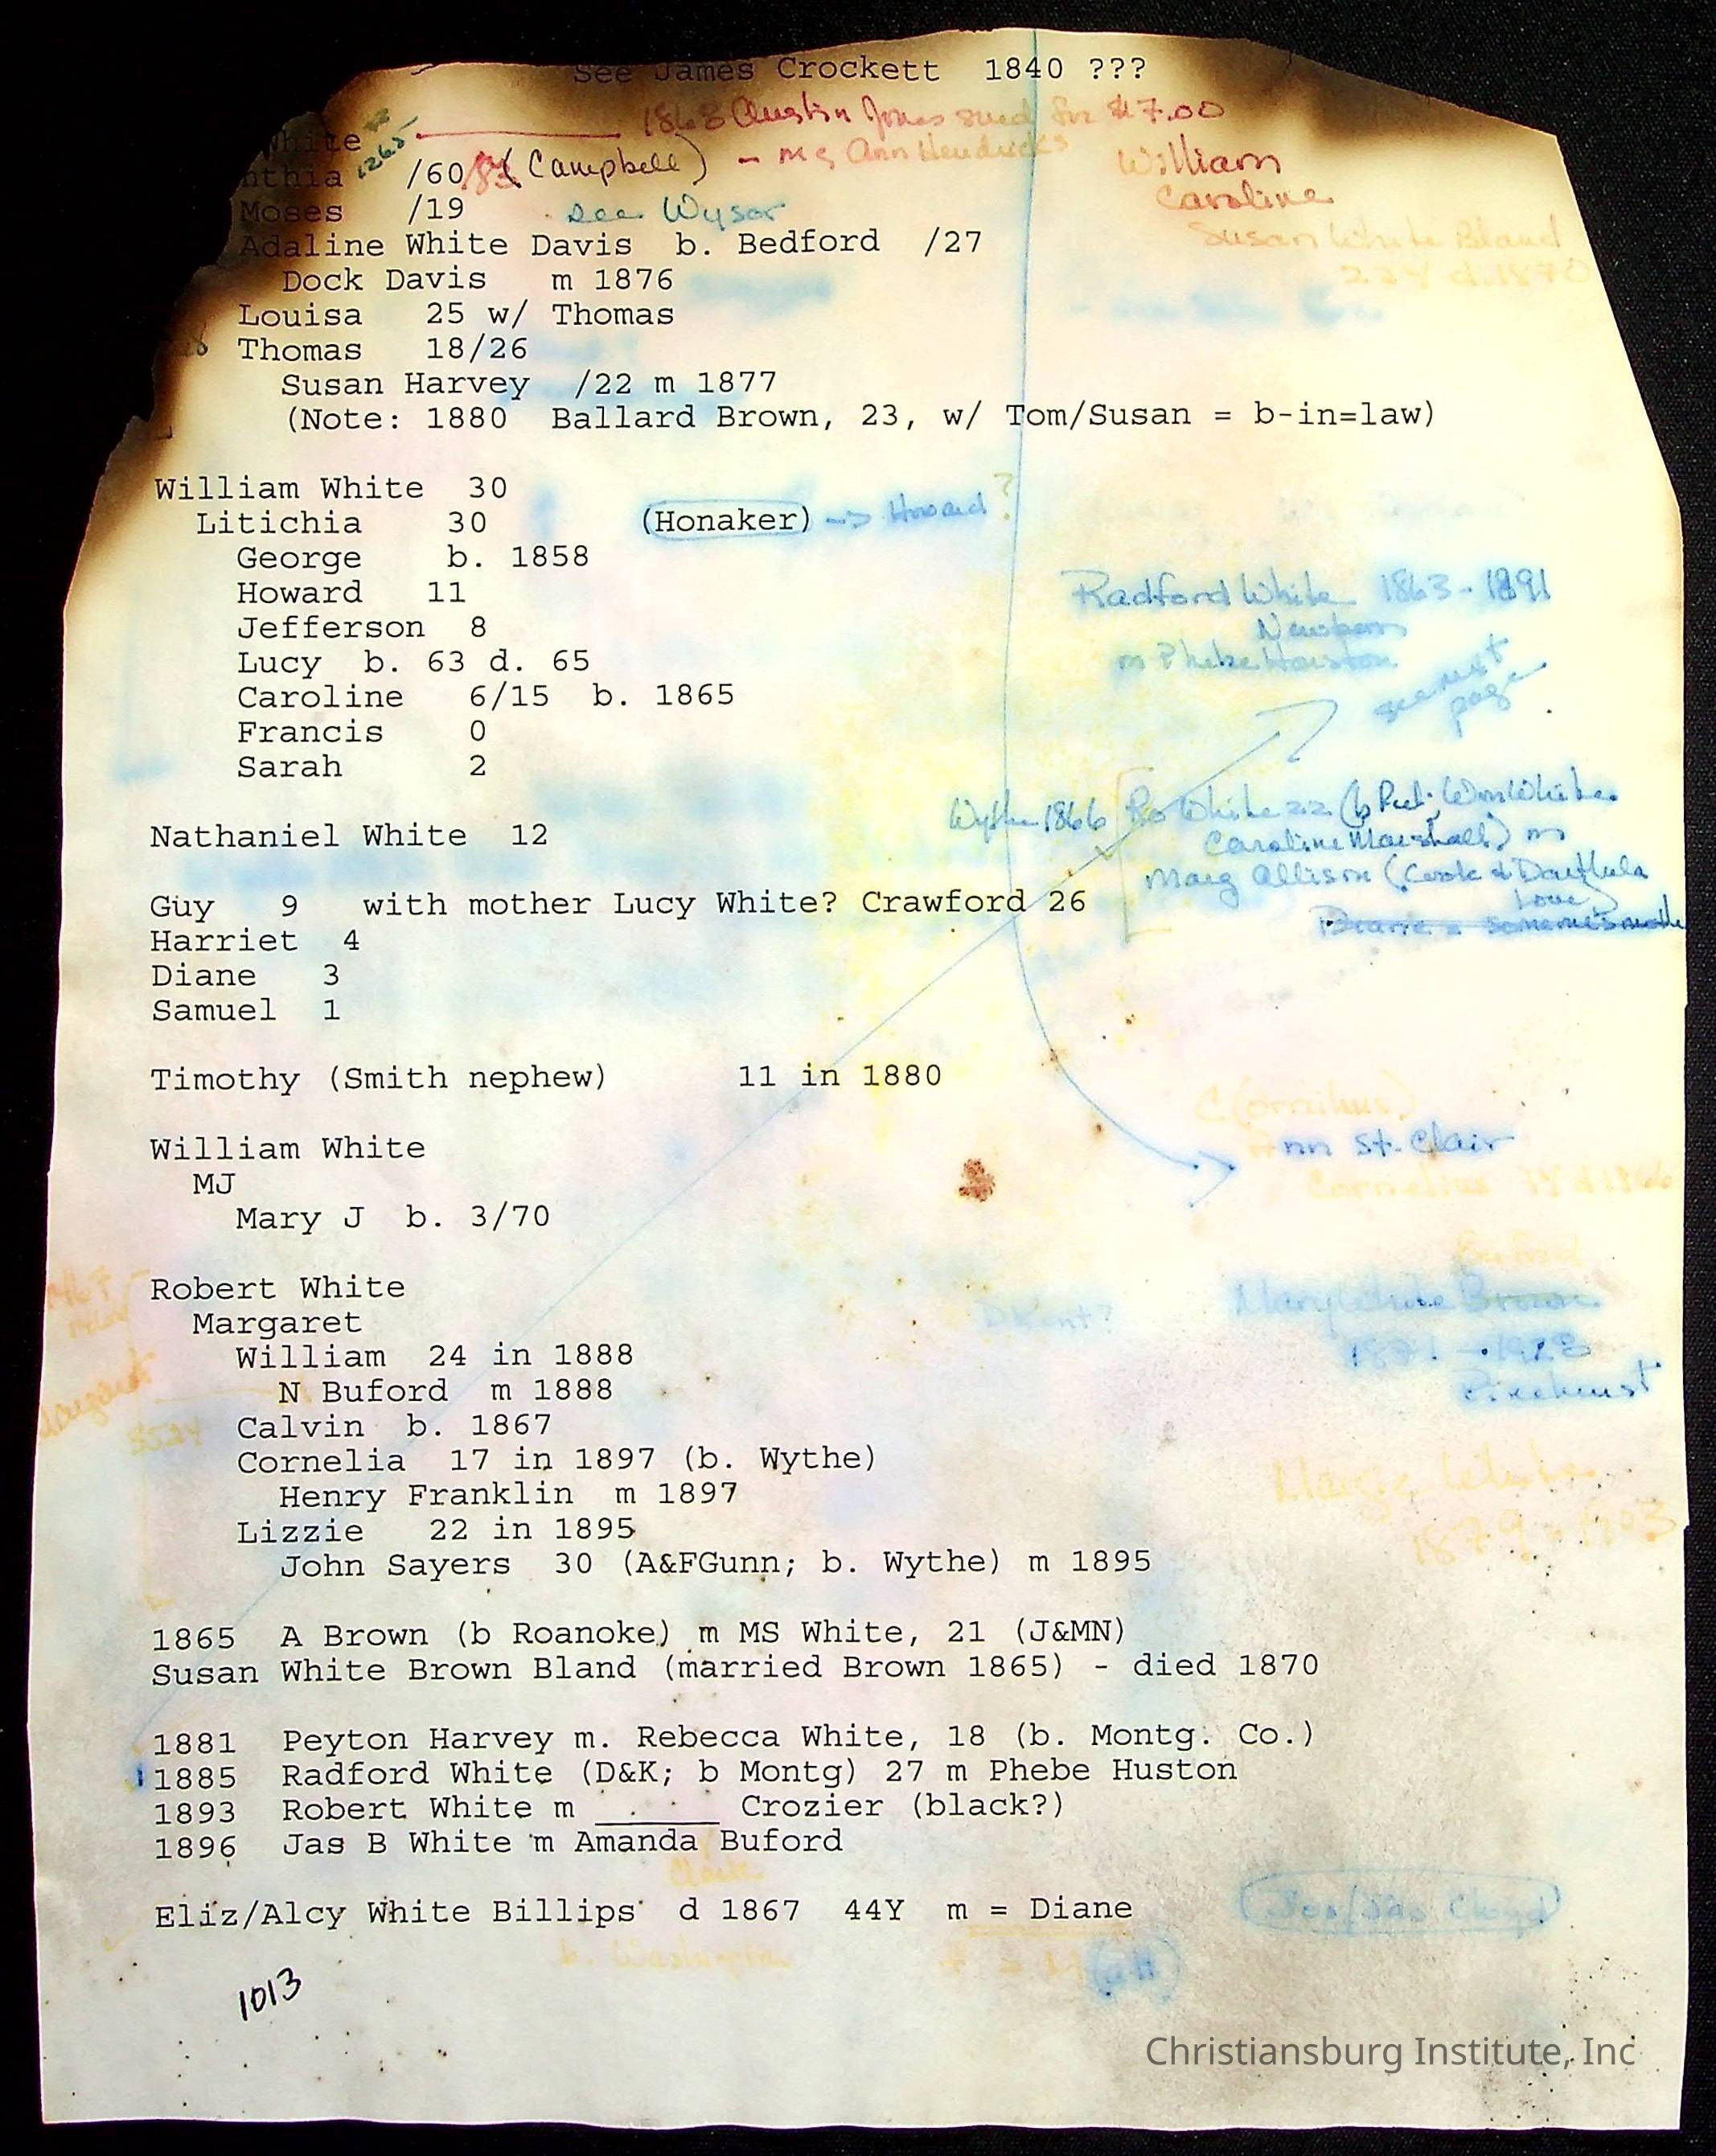 See James Crockett 1840 ???
1868 Austin Jones sued for $17.00
White 1265
nthia /60/83 (Campbell) - ms Ann Hendricks
William
Caroline
Moses /19 see Wysor
Susan White Bland
22Y d. 1870
Adaline White Davis b. Bedford /27
Dock Davis m 1876
Louisa 25 w/ Thomas
Thomas 18/26
Susan Harvey /22 m 1877
(Note: 1880 Ballard Brown, 23, w/ Tom/Susan = b-in=law)
William White 30
Litichia 30 (Honaker) --> Howard ?
George b. 1858
Howard 11
Radford White 1863 - 1891
Newbern
m Phebe Houston
see next
page
Jefferson 8
Lucy b. 63 d. 65
Caroline 6/15 b. 1865
Francis 0
Sarah 2
Wythe 1866 Ro White 22 (b Pul; Wm White
Caroline Marshall) m
Marg Allison (Cook &
Love)
Nathaniel White 12
Guy 9 with mother Lucy White? Crawford 26
Harriet 4
Diane 3
Samuel 1
Timothy (Smith nephew) 11 in 1880
C(ornilius)
Ann St. Clair
Cornelius d 1866
William White
MJ
Mary J b. 3/70
Buford
Mary White Brown
1871 - 1928
Pinehurst
D Kent?
Robert White
Margaret
William 24 in 1888
N Buford m 1888
Calvin b. 1867
Cornelia 17 in 1897 (b. Wythe)
Henry Franklin m 1897
Lizzie 22 in 1895
John Sayers 30 (A&FGunn; b. Wythe) m 1895
Margaret
White
1879 - 1903
1865 A Brown (b Roanoke) m MS White, 21 (J&MN)
Susan White Brown Bland (married Brown 1865) - died 1870
1881 Peyton Harvey m. Rebecca White, 18 (b. Montg. Co.)
1885 Radford White (D&K; b Montg) 27 m Phebe Huston
1893 Robert White m ______ Crozier (black?)
1896 Jas B White m Amanda Buford
Clark
Eliz/Alcy White Billips d 1867 44Y m = Diane
Jos/Jas Cloyd
b. Washington
1013
Christiansburg Institute, Inc